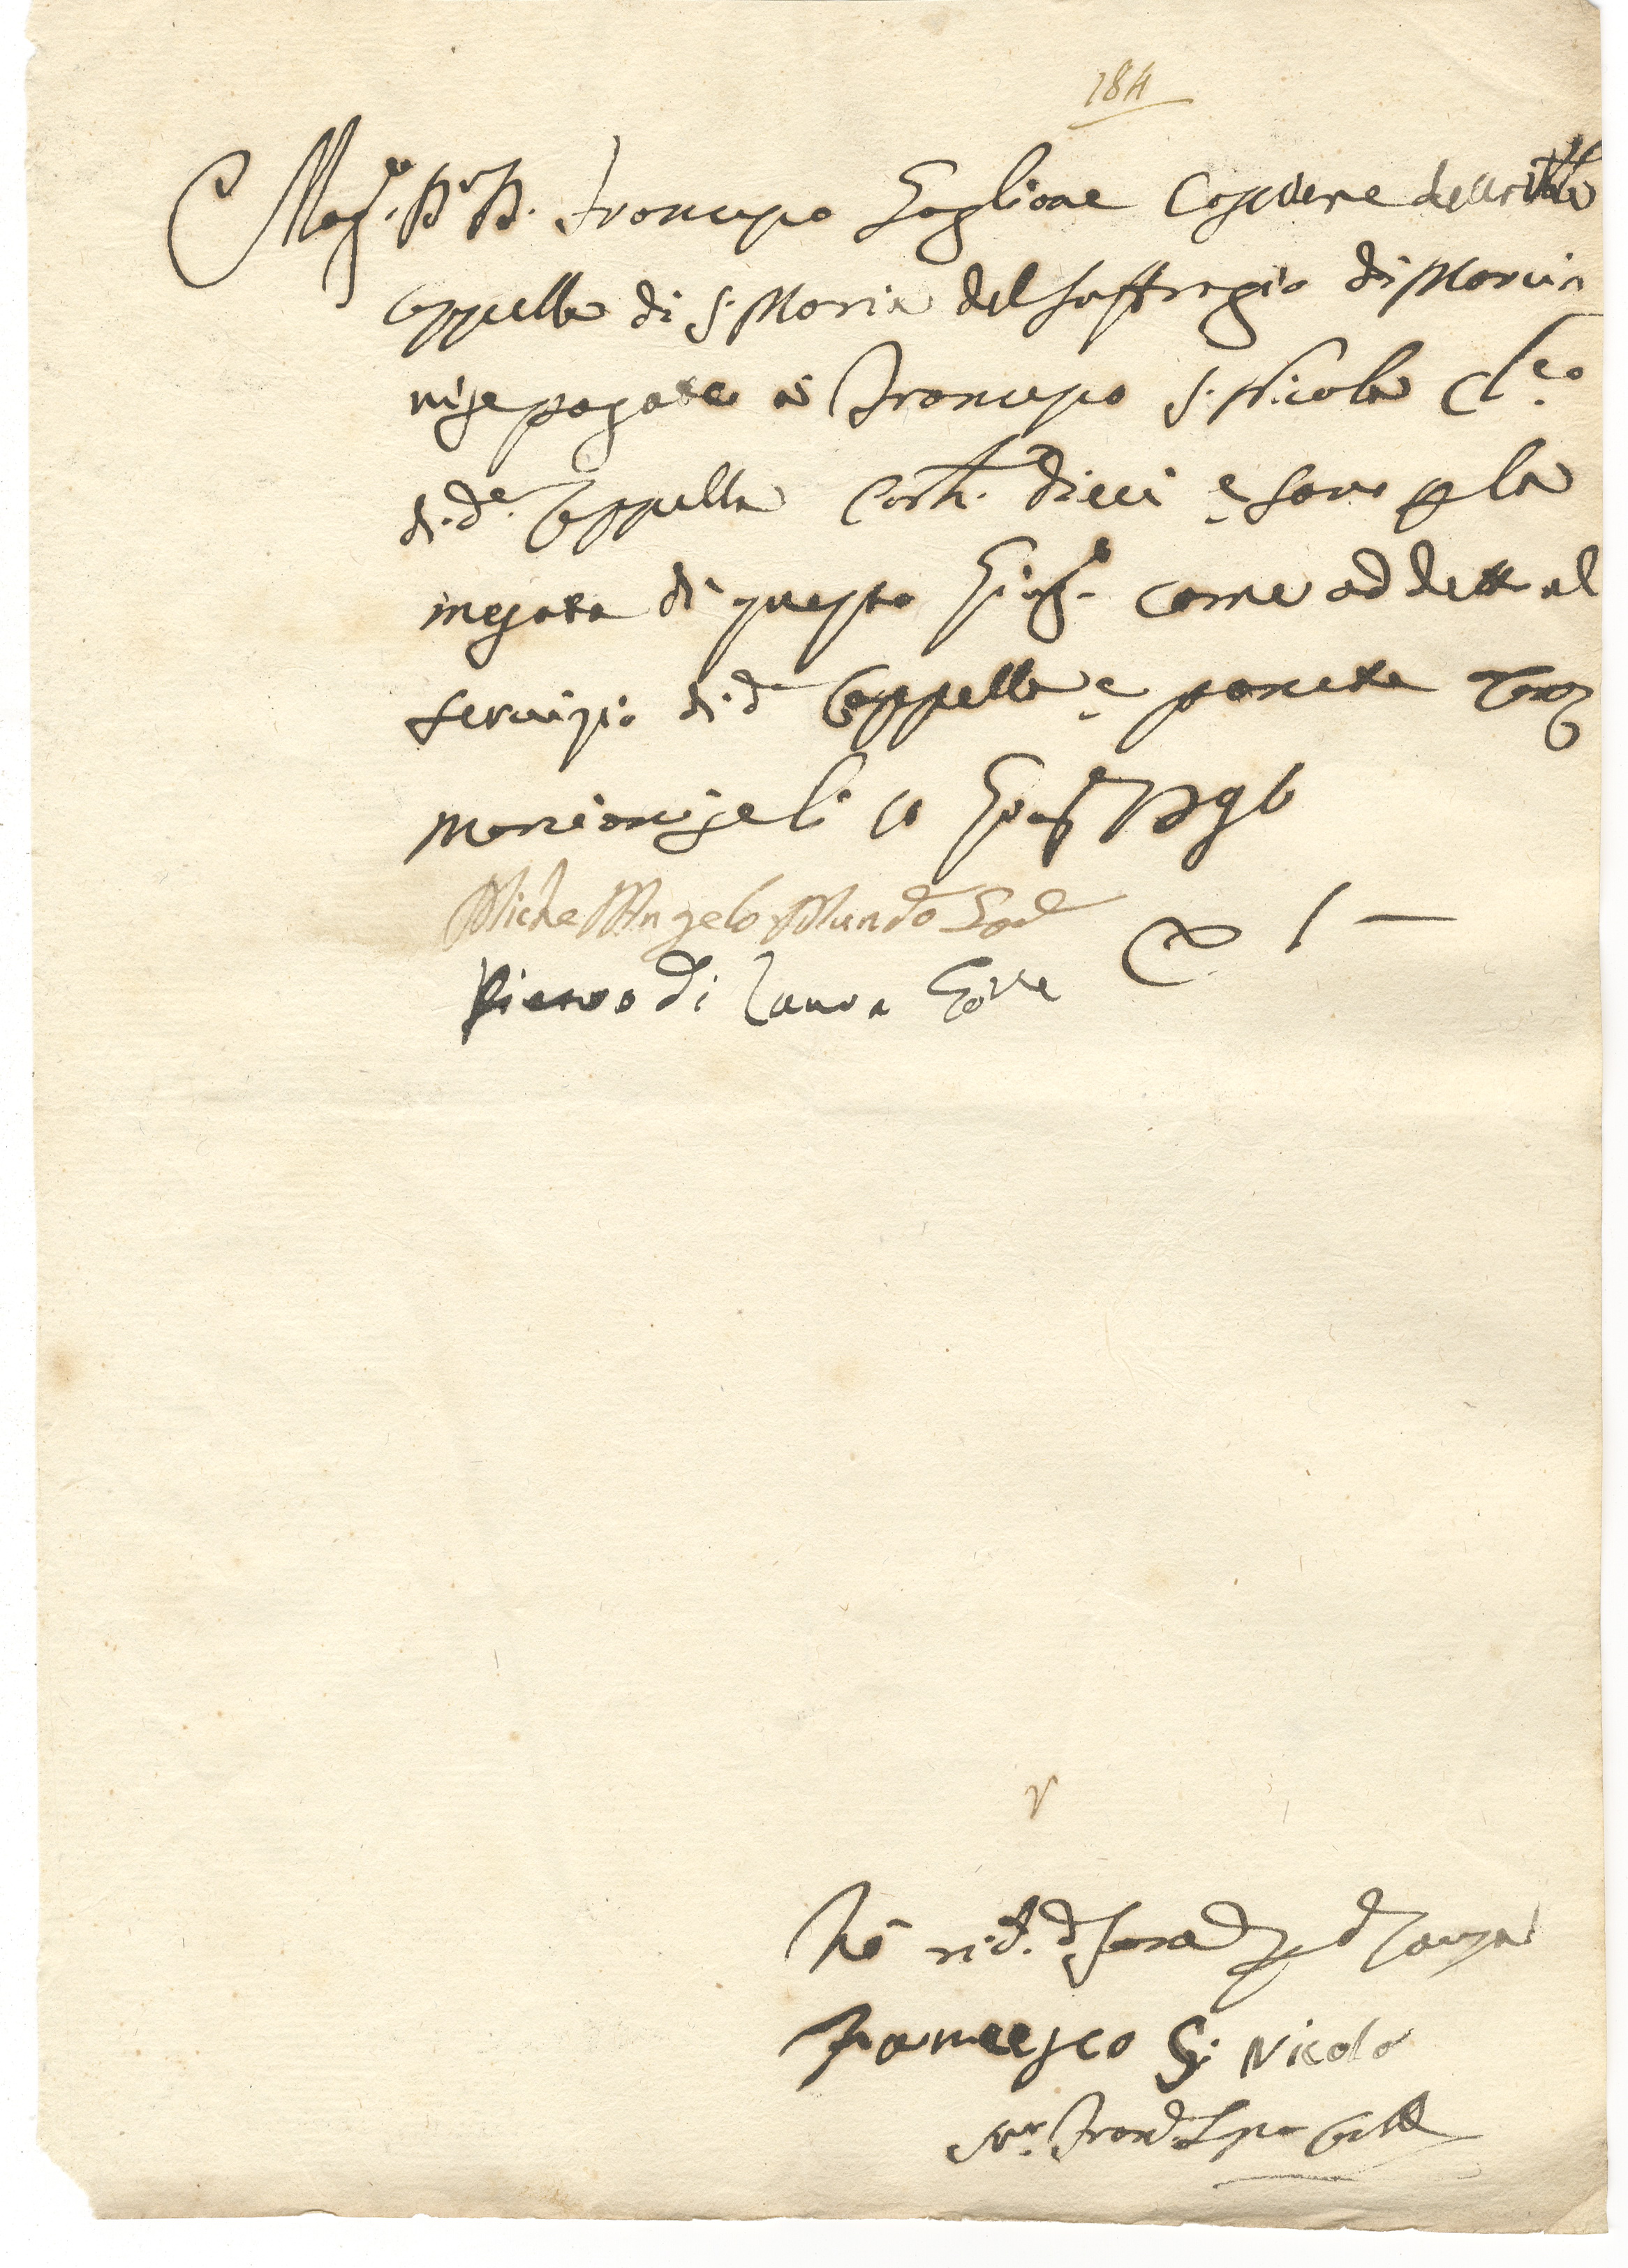 184
Mag.co Dr D. Francesco Gaglione Cassiere della Ven.le
Cappella di S. Maria del Suffragio di Marcia
nise pagate à Francesco S. Nicola Cl.co
di d.a Cappella Carli. dieci e sono p la
mesata di questo Giug.o come addetto al
servizio di d.a Cappella e ponete
Marcianise li 10 Giug.o
Michel'Angelo Mundo God.e
Pietro di Laura Gov.re
D. 1 —
Hò ric.to d. somma p d. causa
Francesco S: Nicola